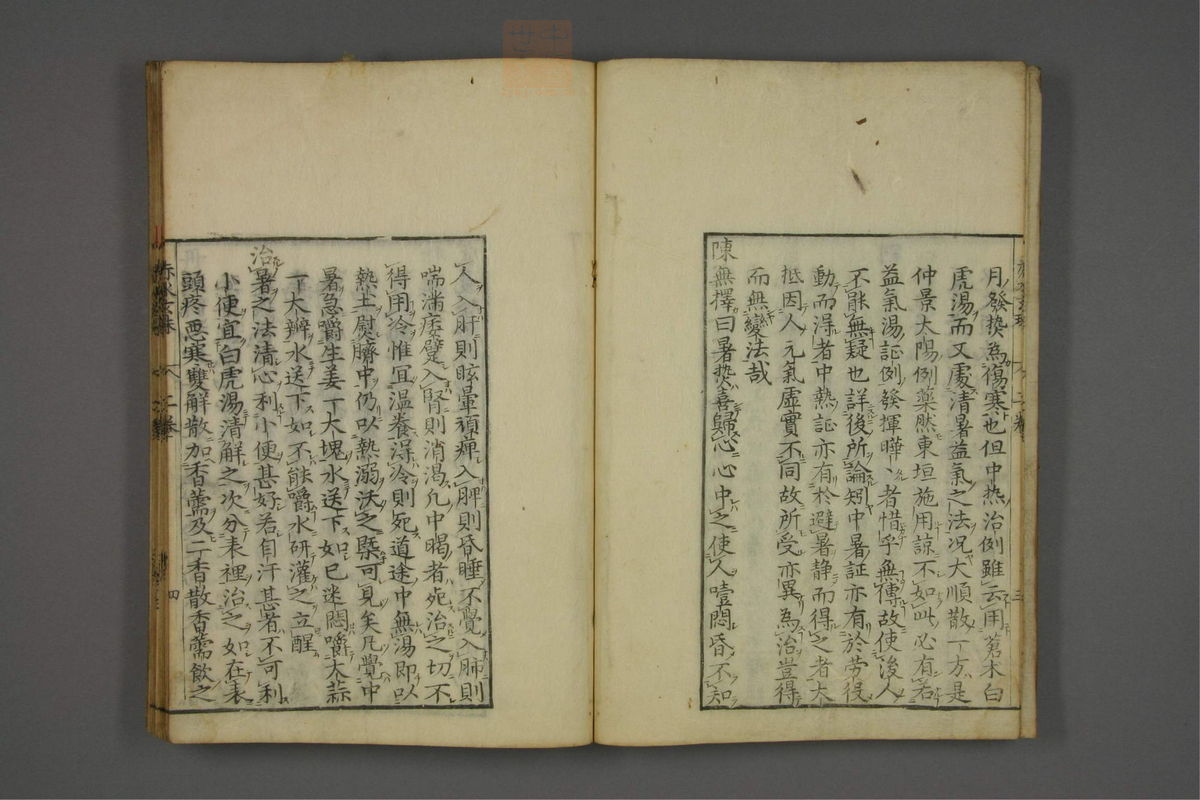 月發热為傷寒也但中热治例雖云用蒼术白
虎湯而又處清暑益氣之法况大順散一方是
仲景太陽例藥然東垣施用諒不如此必有若
益氣湯証例發揮曄〻者惜乎無傳故使後人
不能無疑也詳後所論矧中暑証亦有於劳役
動而得者中熱証亦有於避暑静而得之者大
抵因人元氣虛實不同故所受亦異為治豈得
而無變法哉
陳無擇曰暑热喜歸心心中之使人噎悶昏不知
人入肝則眩暈頑痺入脾則昏睡不覺入肺則
喘滿痿躄入腎則消渴凢中暍者死治之切不
得用冷惟宜温養得冷則死道途中無湯即以
熱土熨臍中仍以熱溺沃之槩可見矣凢覺中
暑急嚼生姜一大塊水送下如已迷悶嚼大蒜
一大瓣水送下如不能嚼水研灌之立醒
治暑之法清心利小便甚好若自汗甚者不可利
小便宜白虎湯清解之次分表裡治之如在表
頭疼悪寒雙解散加香薷及二香散香薷飲之
二卷
三
二卷
四